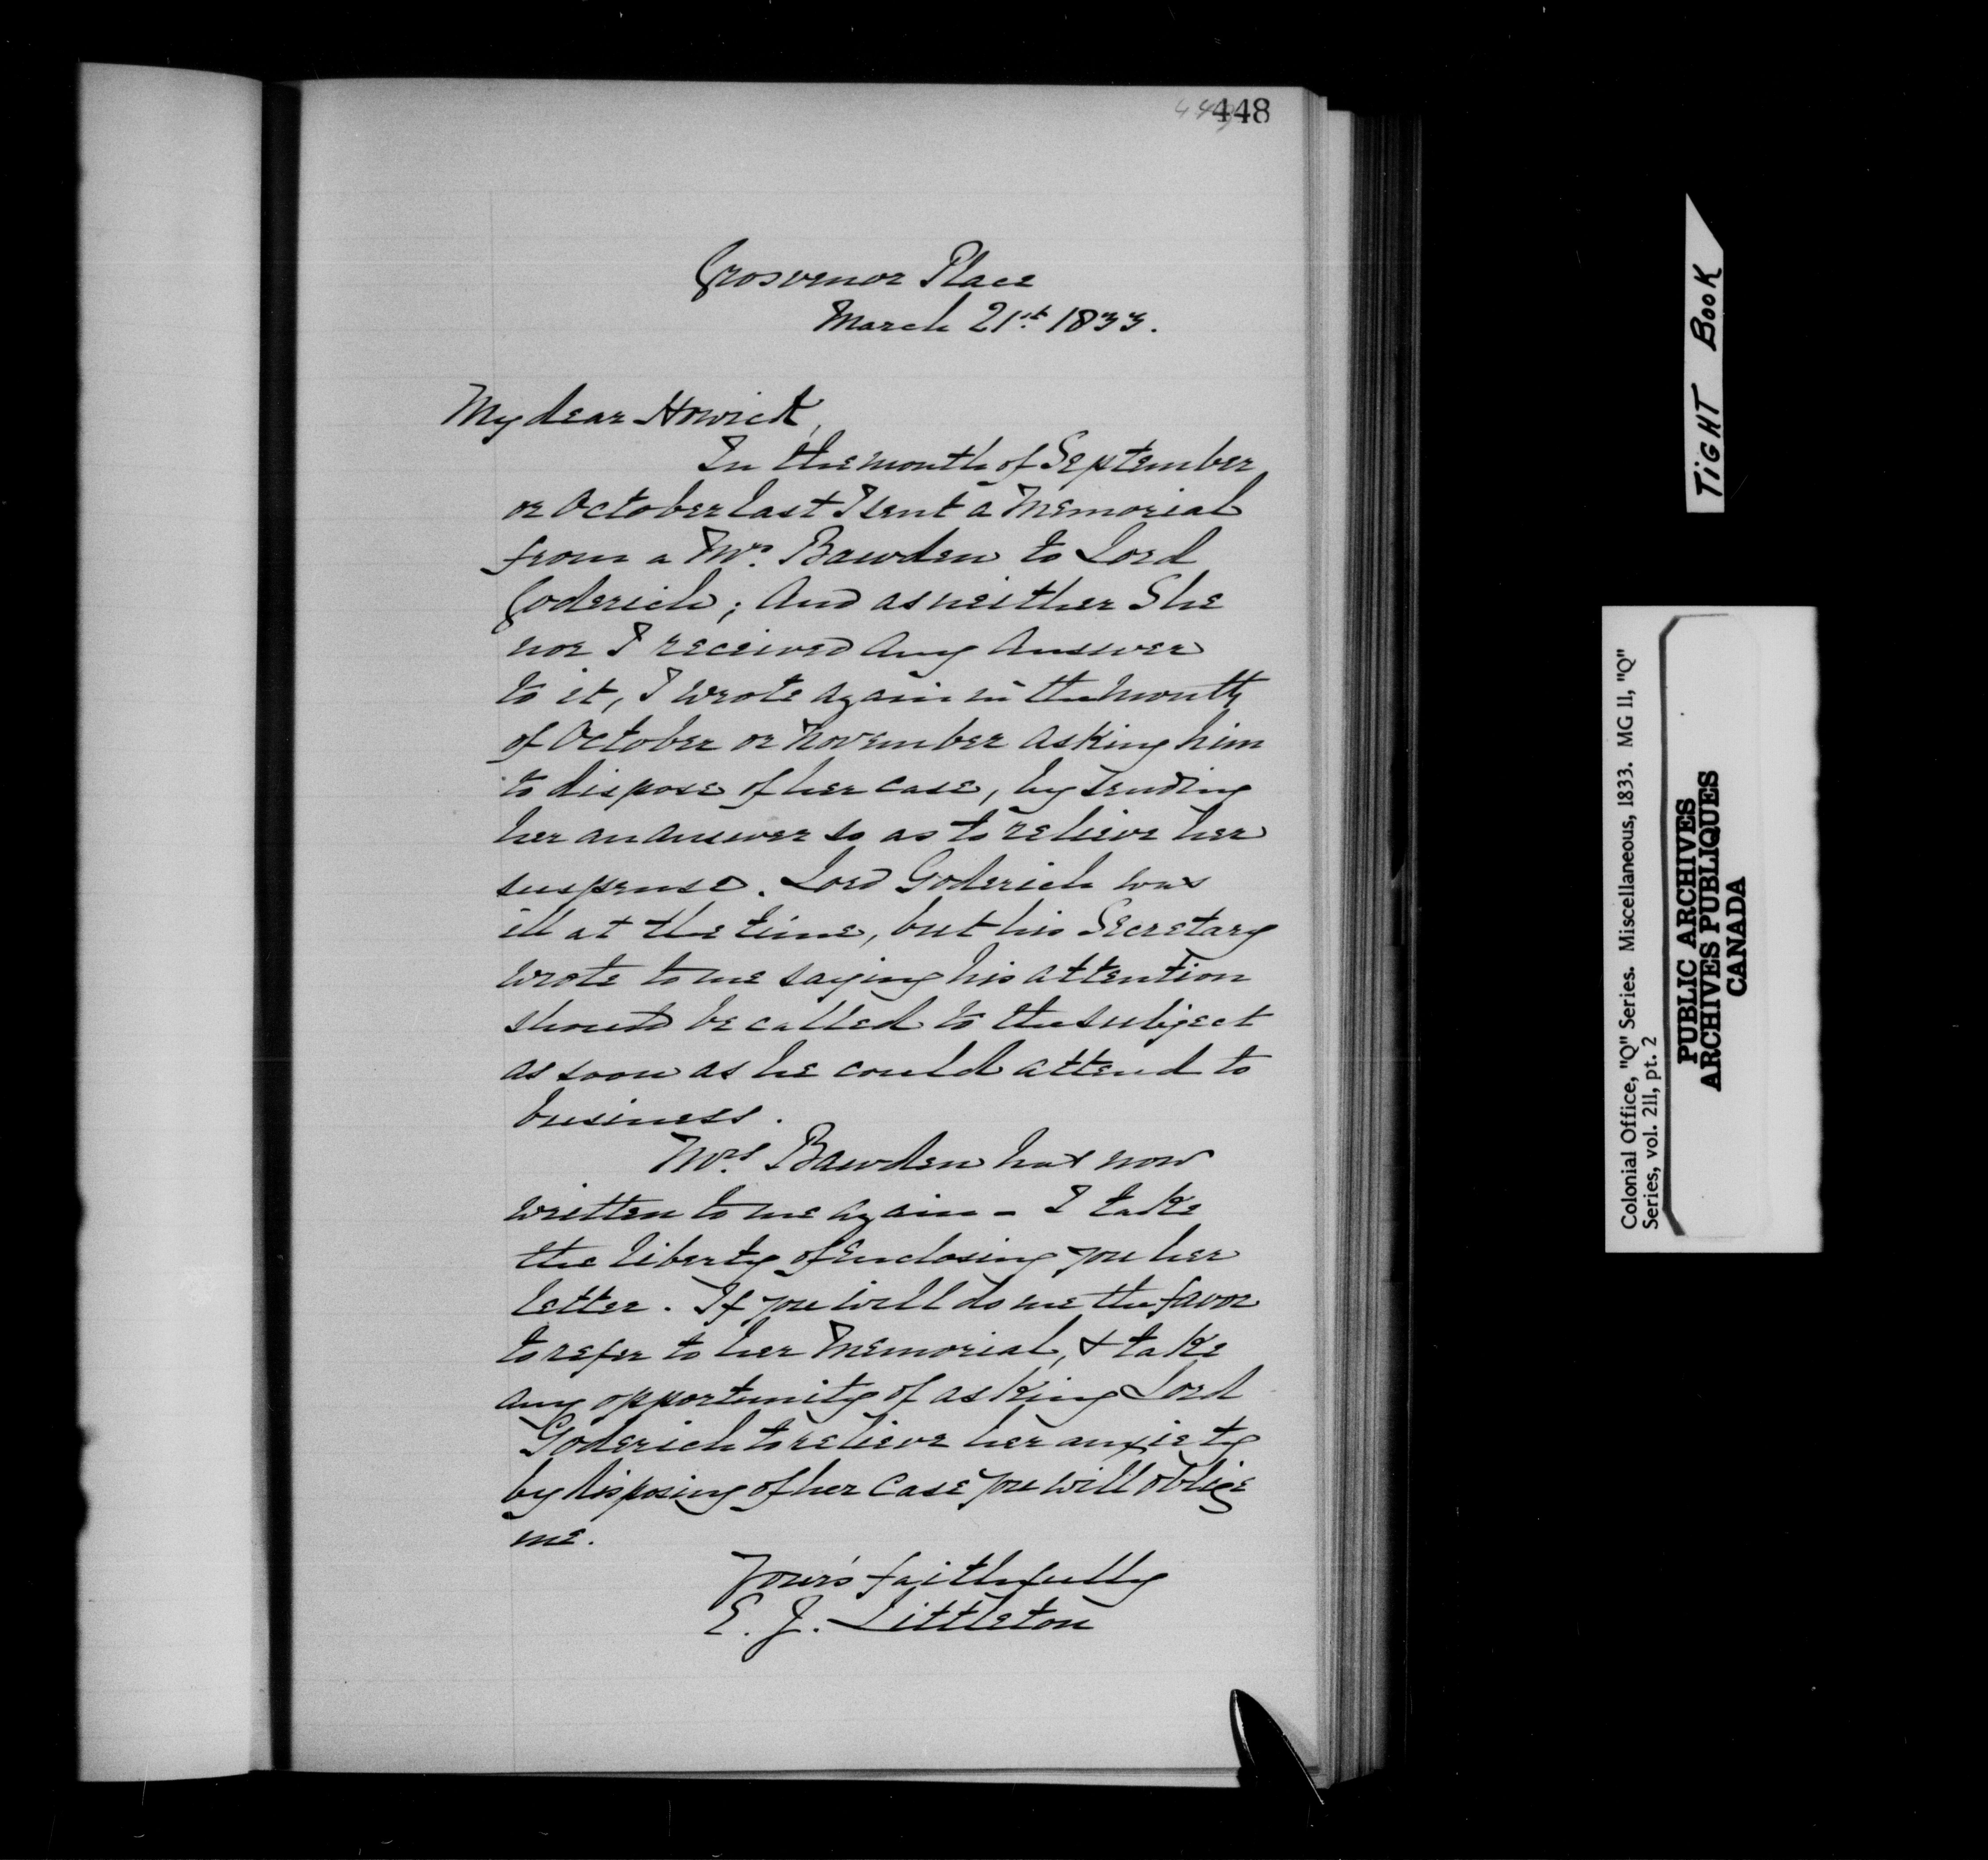 448
Grosvenor Place
March 21st 1833.
My dear Howick,
In the month of September
or October last I sent a Memorial
from a Mrs. Bawden to Lord
Goderich; And as neither She
nor I received any answer
to it, I wrote again in the month
of October or November asking him
to dispose of her case, by sending
her an answer so as to relieve her
suspense. Lord Goderich was
ill at the time, but his Secretary
wrote to me saying his attention
should be called to the subject
as soon as he could attend to
business.
Mrs. Bawden has now
written to me again - I take
the liberty of enclosing you her
letter. If you will do me the favor
to refer to her Memorial, & take
any opportunity of asking Lord
Goderich to relieve her anxiety
by disposing of her case you will oblige
me.
Your's faithfully
E. J. Littleton
TIGHT BOOK
Colonial Office, "Q" Series. Miscellaneous, 1833. MG 11, "Q"
Series, vol. 211, pt. 2
PUBLIC ARCHIVES
ARCHIVES PUBLIQUES
CANADA